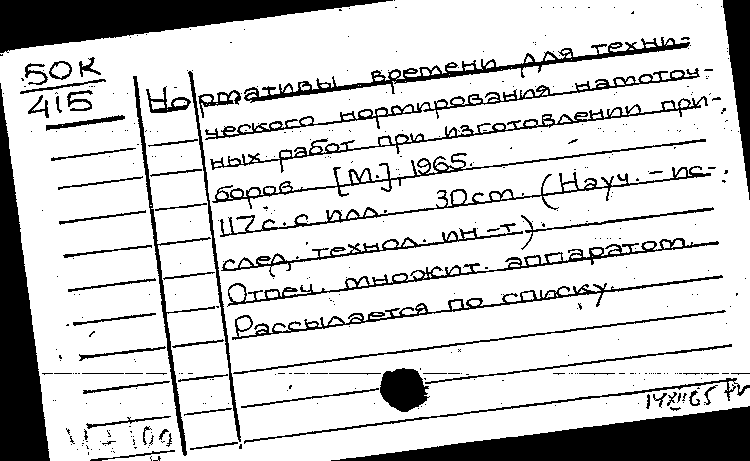 50К
415
Нормативы времени для техни-
ческого нормирования намоточ-
ных работ при изготовлении при-
боров. [М.], 1965.
117 с. с илл. 30см. (Науч.-ис-
след. технол. ин-т).
Отпеч. множит. аппаратом.
Рассылается по списку.
14XII65